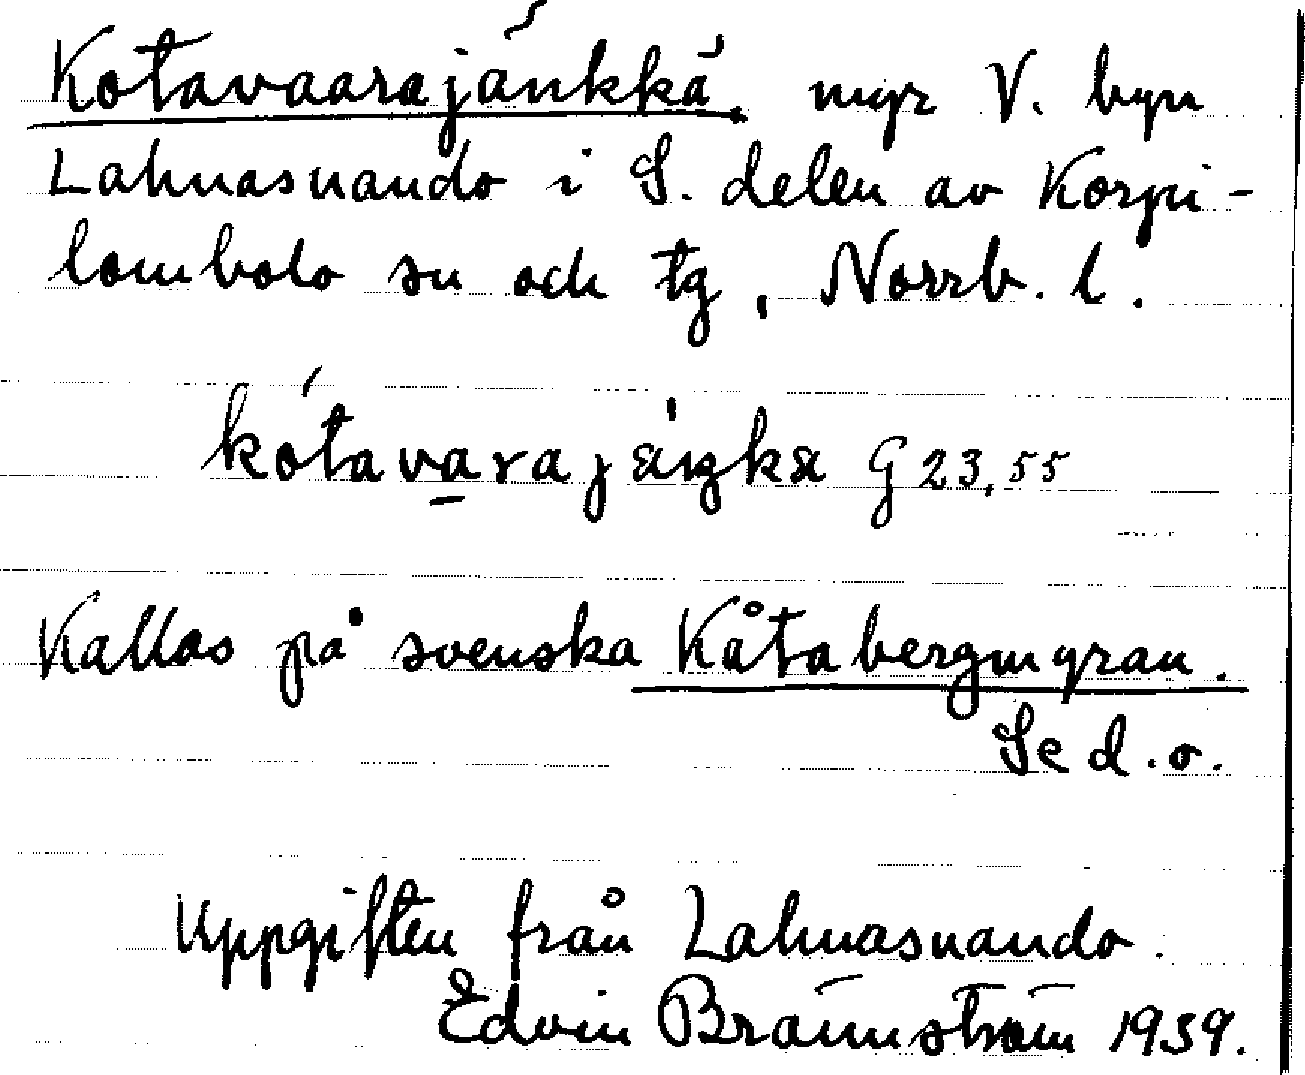 Kotavaarajänkkä. myr V. byn
Lahnasuando i S. delen av Korpi-
lombolo sn och tg, Norrb. l.
kótavarajæŋkæ G 23,55
Kallas på svenska Kåtabergmyran.
Se d.o.
Uppgiften från Lahnasuando.
Edvin Brännström 1939.